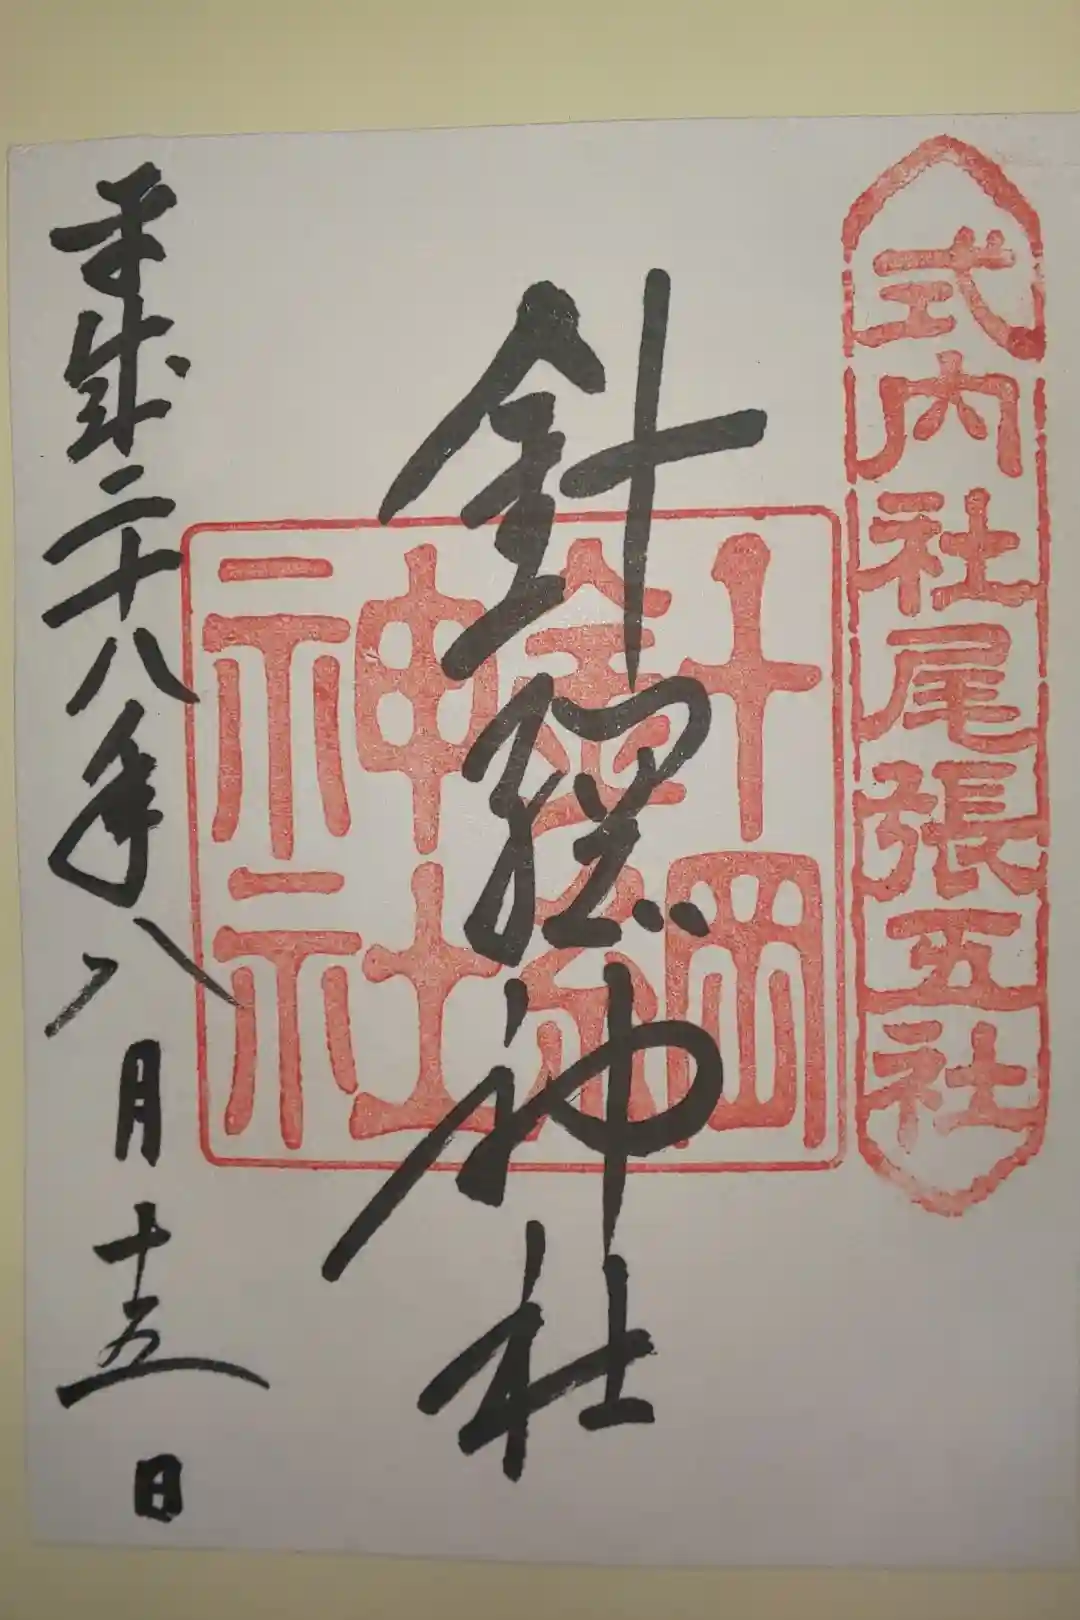 式内社尾張五社
針綱神社
針綱神社
平成二十八年八月十五日